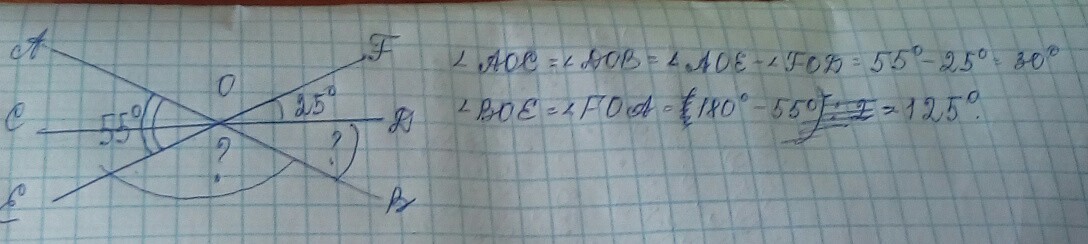 A
F
O
25°
C
55°
D
?
?
E
B
∠AOC = ∠DOB = ∠AOE - ∠FOD = 55° - 25° = 30°
∠BOE = ∠FOA = 180° - 55° = 125°.